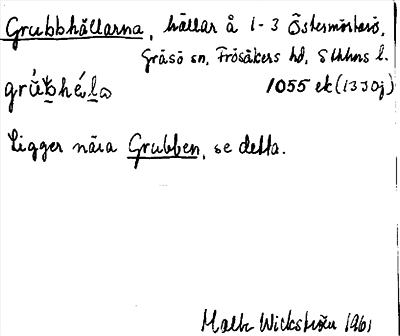 Grubbhällarna, hällar å 1-3 Östermörtarö,
Gräsö sn, Frösåkers hd, Sthlms l.
1055 ek (1330j)
Ligger nära Grubben, se detta.
Wickström 1961